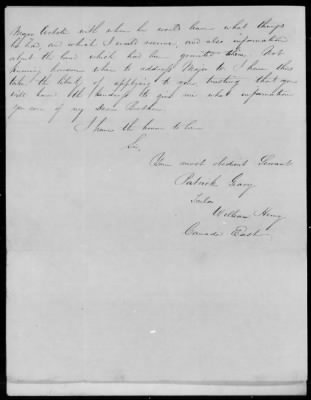 Major with whom he would leave what things
he had, and which I would receive, and also information
about the land which had been granted them. Not
knowing however where to address Major I have thus
taken the liberty of applying to you, trusting that you
will have the kindness to give me what information
you can of my Dear Brother
I have the honor to be
Sir,
Your most obedient Servant
Patrick Geary
Tailor
William Henry
Canada East